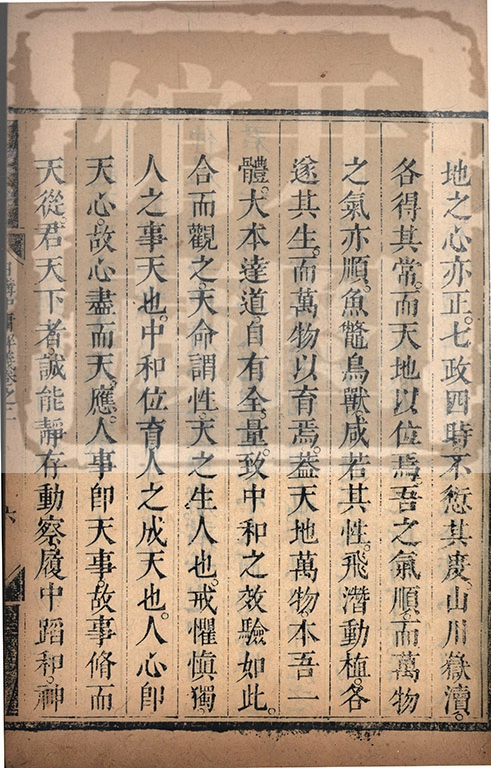 地之心亦正。七政四時。不愆其度。山川嶽瀆。
各得其常。而天地以位焉。吾之氣順。而萬物
之氣亦順。魚鼈鳥獸。咸若其性。飛潛動植。各
遂其生。而萬物以育焉。蓋天地萬物本吾一
體。大本達道。自有全量。致中和之效驗如此。
合而觀之。天命謂性。天之生人也。戒懼慎獨。
人之事天也。中和位育。人之成天也。人心卽
天心。故心盡而天應。人事卽天事。故事脩而
天從。君天下者。誠能靜存動察。履中蹈和。神
六